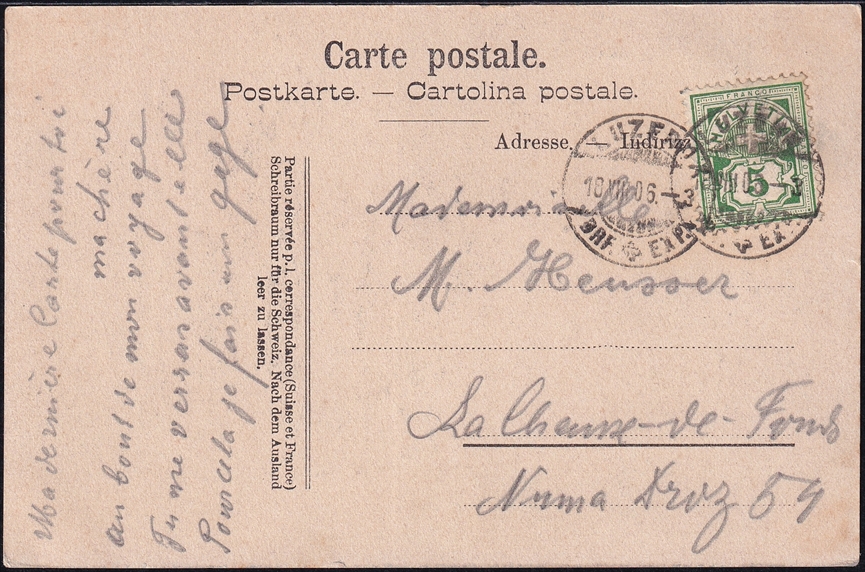 Carte postale.
Postkarte. — Cartolina postale.
Adresse. — Indirizz
FRANCO
HELVETIA
5
LUZERN
10 VIII 06. – 3
BRF. EXP.
Mademoiselle
M. Heusser
La Chaux-de-Fonds
Numa Droz 59
Partie réservée p. l. correspondance (Suisse et France)
Schreibraum nur für die Schweiz. Nach dem Ausland
leer zu lassen.
Ma dernière Carte pour toi
ma chère
au bout de mon voyage
Tu me verras avant elle
Pour cela je fais un gage